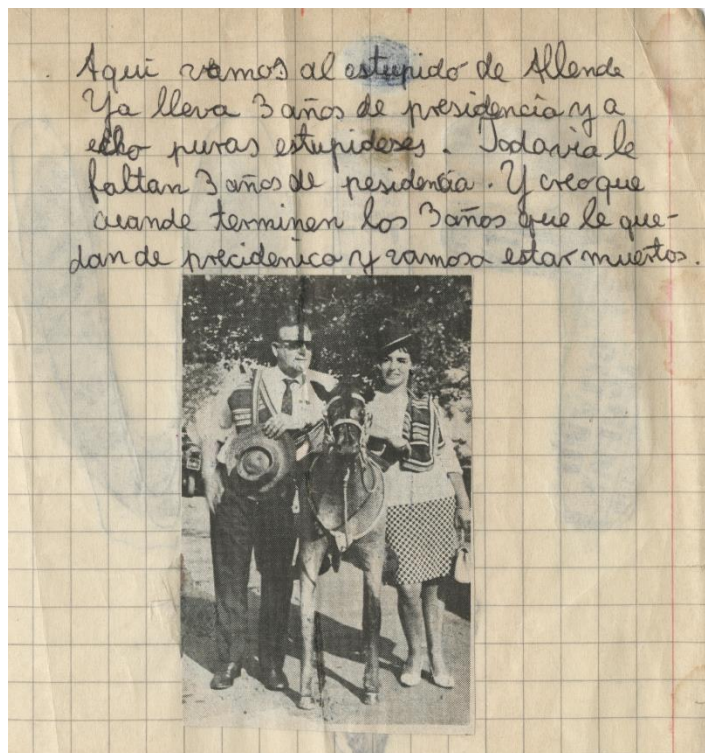 Aqui vamos al estupido de Allende
Ya lleva 3 años de presidencia y a
echo puras estupideses. Todavia le
faltan 3 años de pesidencia. Y creo que
cuande terminen los 3 años que le que-
dan de precidenica y vamosa estar muertos.